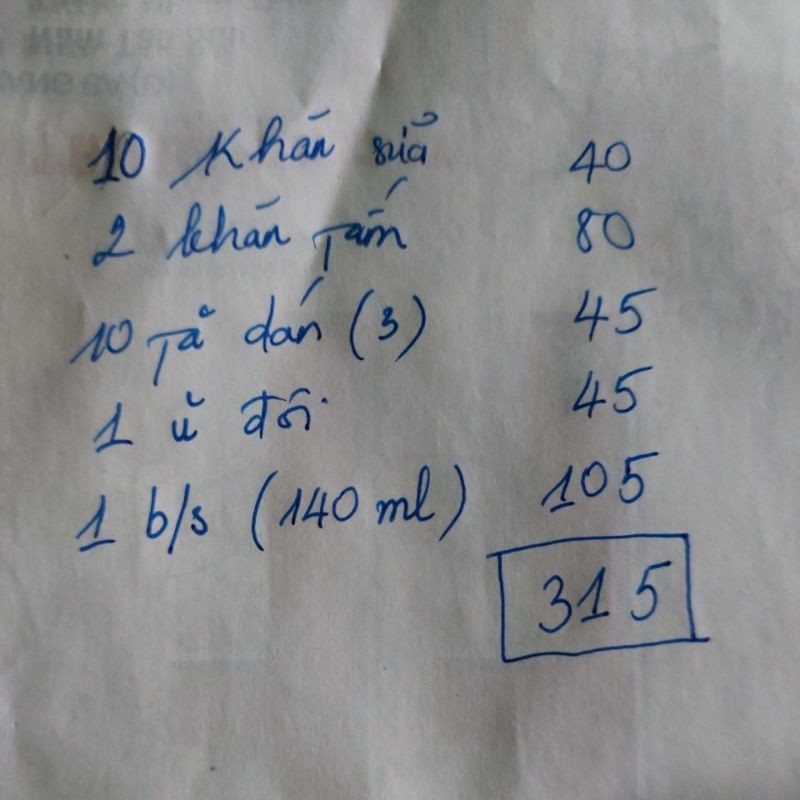 10 Khăn sữa 40
2 khăn Tắm 80
10 Tả dán (3) 45
1 ủ đôi 45
1 b/s (140 ml) 105
315